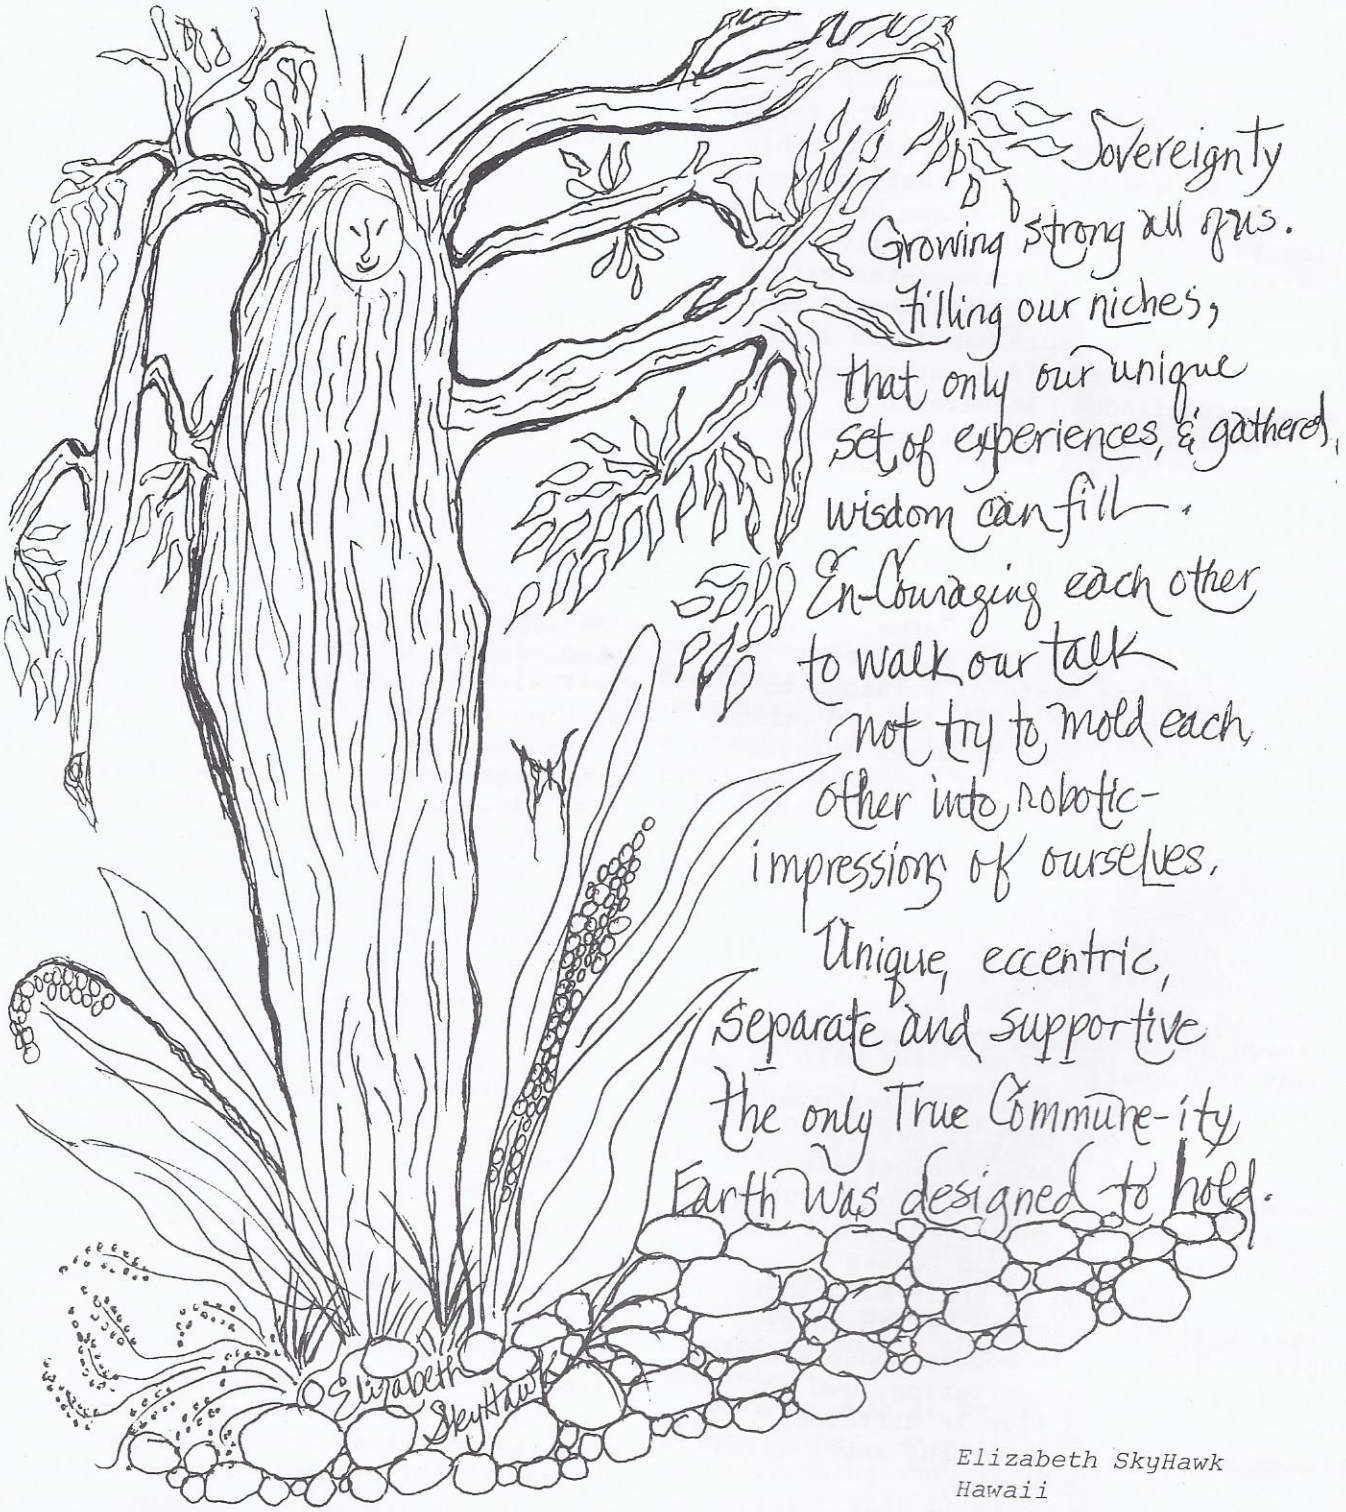 Sovereignty
Growing strong all of us.
Filling our niches,
that only our unique
set of experiences, & gathered,
wisdom can fill.
En-Couraging each other
to walk our talk
not try to mold each,
other into robotic-
impressions of ourselves.
Unique, eccentric,
separate and supportive
the only True Commune-ity
Earth was designed to hold.
Elizabeth
SkyHawk
Elizabeth SkyHawk
Hawaii